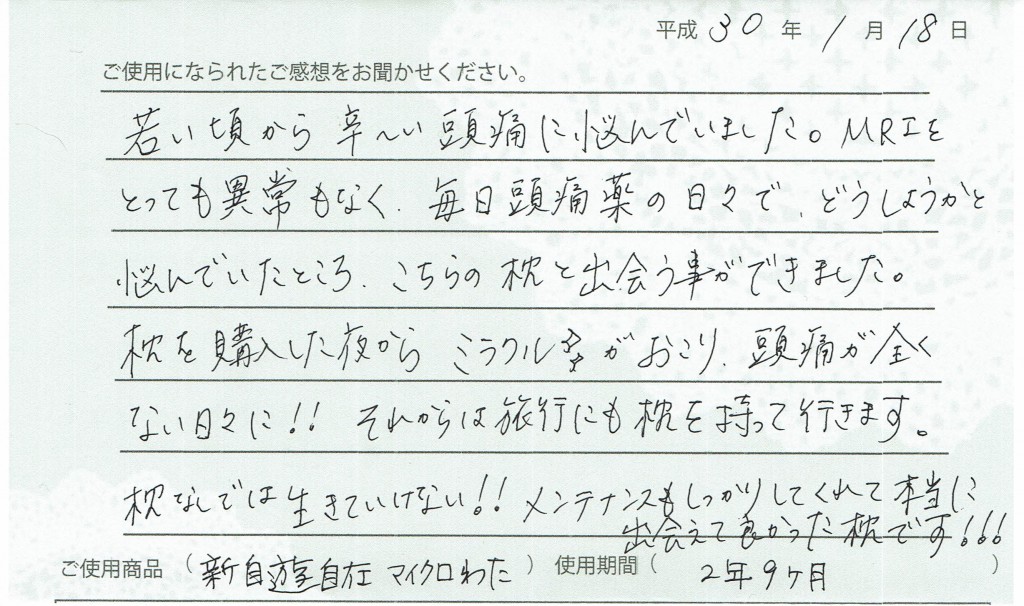 平成 30 年 1 月 18 日
ご使用になられたご感想をお聞かせください。
若い頃から辛〜い頭痛に悩んでいました。MRIを
とっても異常もなく、毎日頭痛薬の日々で、どうしようかと
悩んでいたところ、こちらの枕と出会う事ができました。
枕を購入した夜からミラクルがおこり、頭痛が全く
ない日々に!! それからは旅行にも枕を持って行きます。
枕なしでは生きていけない!! メンテナンスもしっかりしてくれて本当に
出会えて良かった枕です!!!
ご使用商品 (新自遊自在 マイクロわた) 使用期間 ( 2年9ヶ月 )